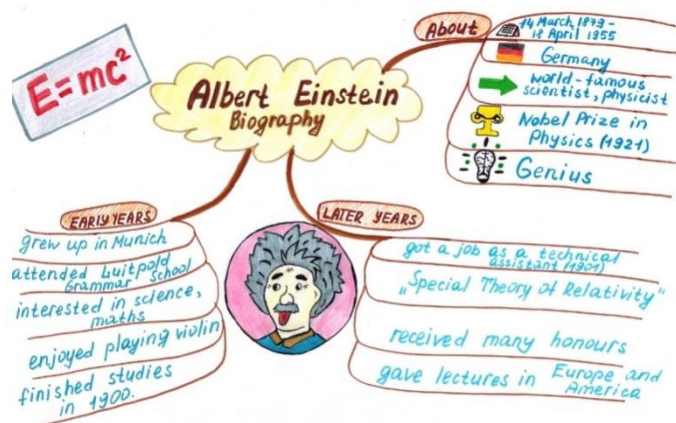 E=mc²
Albert Einstein
Biography
About
14 March 1879 -
18 April 1955
Germany
world-famous
scientist, physicist
Nobel Prize in
Physics (1921)
Genius
EARLY YEARS
grew up in Munich
attended Luitpold
Grammar School
interested in science,
maths
enjoyed playing violin
finished studies
in 1900.
LATER YEARS
got a job as a technical
assistant (1901)
„Special Theory of Relativity"
received many honours
gave lectures in Europe and
America